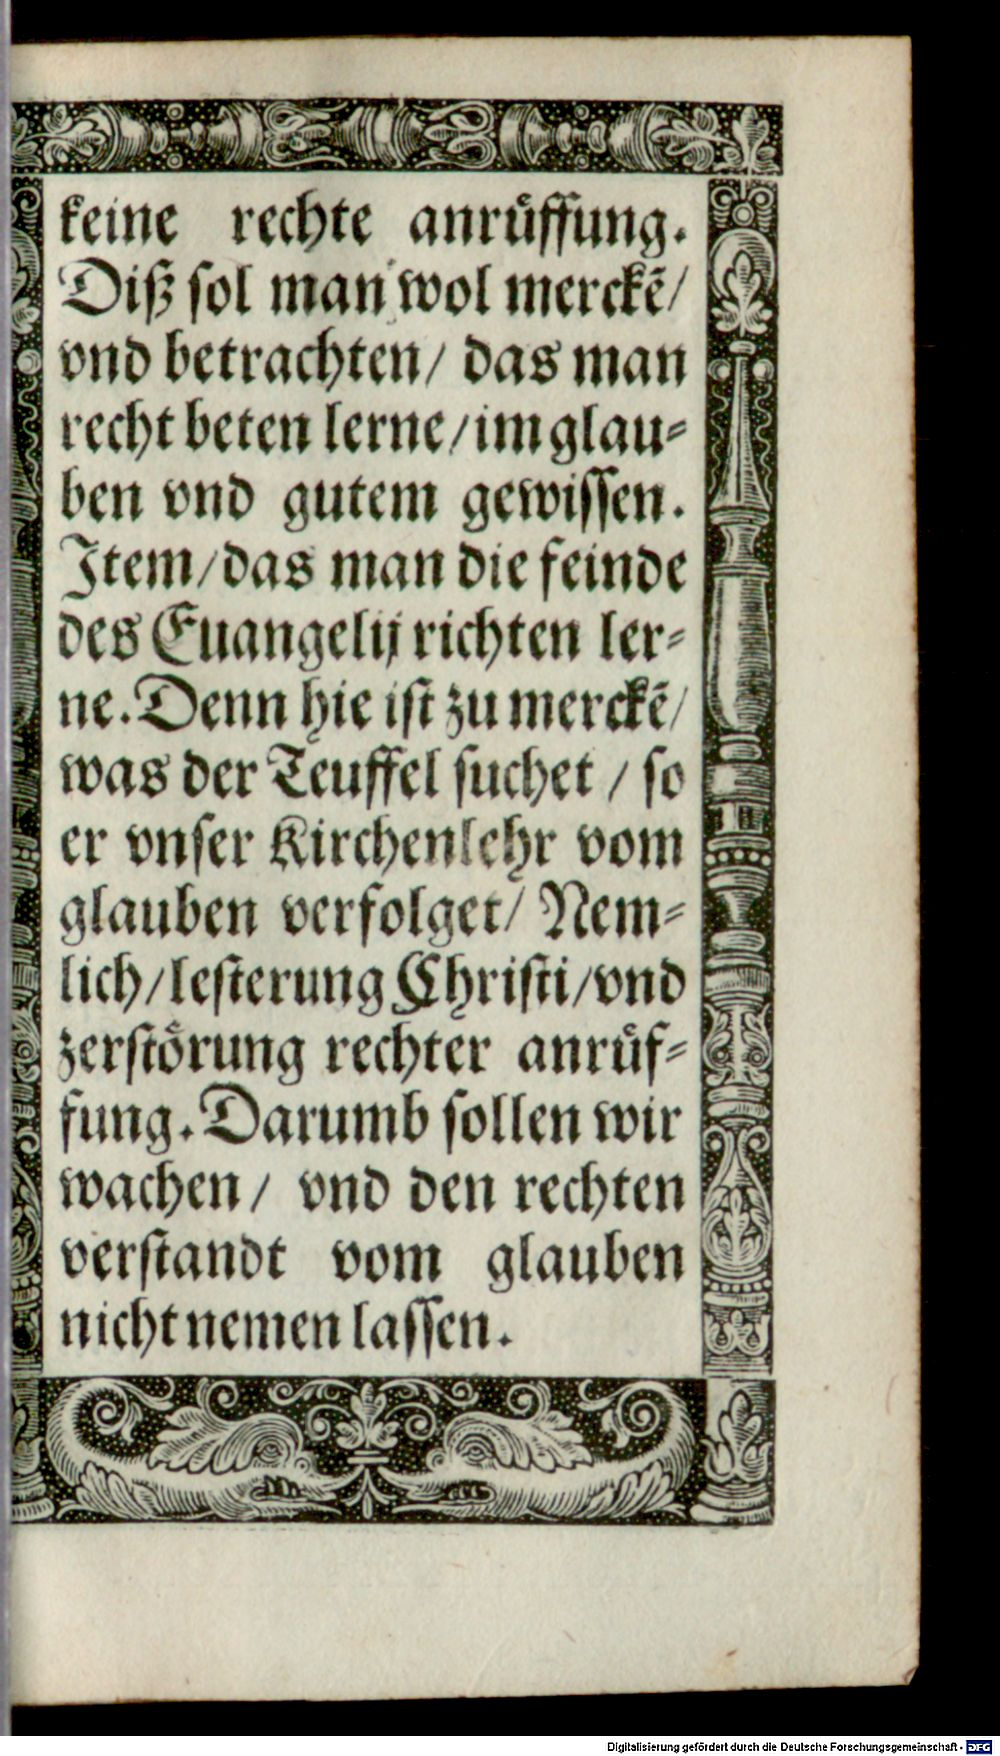 keine rechte anrůffung.
Diß sol man wol merckẽ/
vnd betrachten/ das man
recht beten lerne/im glau⸗
ben vnd gutem gewissen.
Item/das man die feinde
des Euangelij richten ler⸗
ne. Denn hie ist zu merckẽ/
was der Teuffel suchet / so
er vnser Kirchenlehr vom
glauben verfolget/ Nem⸗
lich/lesterung Christi/vnd
zerstörung rechter anrůf⸗
fung. Darumb sollen wir
wachen/ vnd den rechten
verstandt vom glauben
nicht nemen lassen.
Digitalisierung gefördert durch die Deutsche Forschungsgemeinschaft - DFG